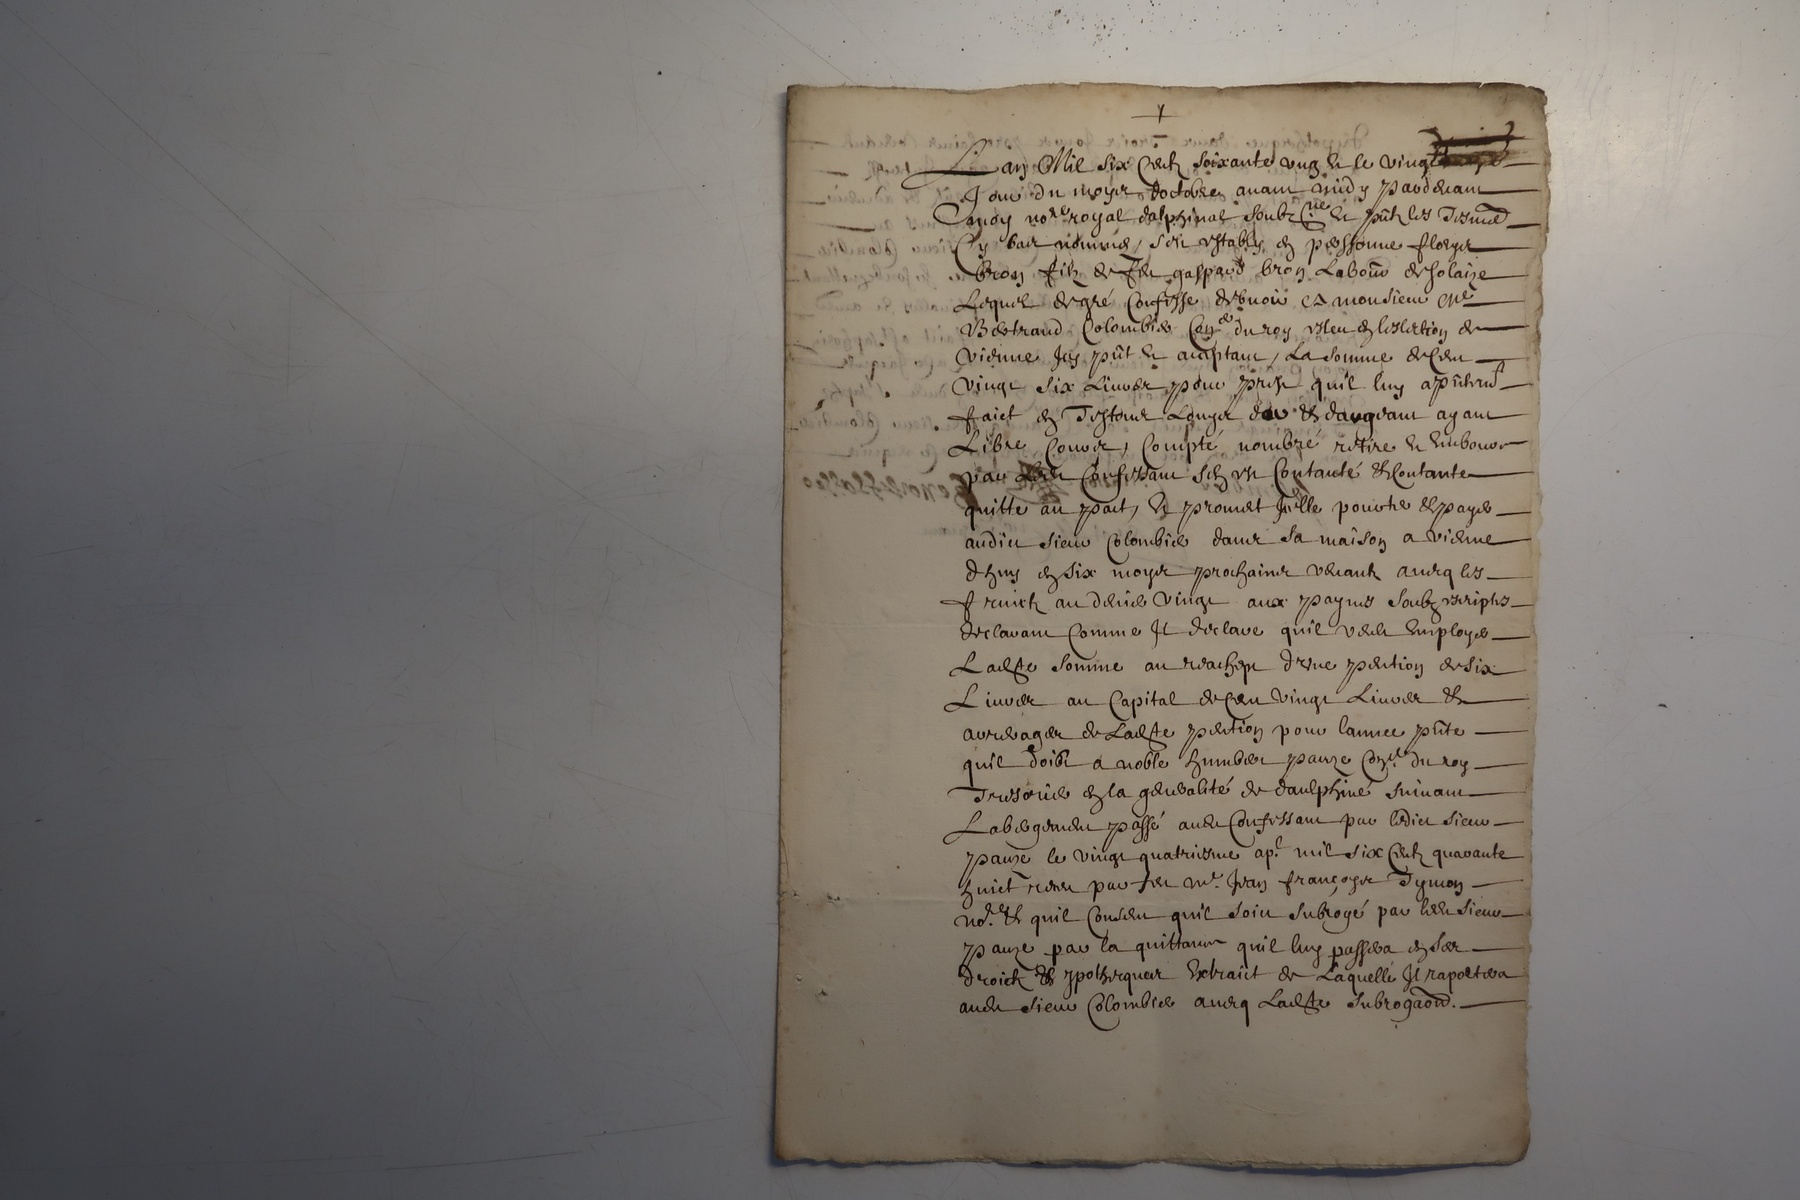 Lan Mil six Centz soixante ung et le vingt
Jour du moys doctobre avant midy pardevant
moy nore royal dalphinal soubzne et pñtz les Tesmd
Cy bas nommes, sest estably en personne
bron filz de feu gaspard bron Labour de solaize
Lequel de gré Confesse debvoir a monsieur Me
Bertrand Colombier Conser du roy esleu en leslection de
vienne Icy pñt et acceptant, La somme de Cent
vingt six Livres pour prest quil luy a pñtemt
faict en Testons Louys dor et dargent ayant
Libre Cours, Compté nombré retiré et Embourse
par Ledt Confessant sen est Contanté et Contante
quitte au pact, et promet Jcelle pourter et payer
audict sieur Colombier dans sa maison a vienne
dhuy en six moys prochains venantz avecq les
fruictz au denier vingt aux paynes soubzescriptes
desclarant Comme Jl desclare quil veut Employer
Ladte somme au reachept dune pention de six
Livres au Capital de Cent vingt Livres et
arrerages de Ladte pention pour lannee pñte
quil doibt a noble humbert panze Conser du roy
Tresorier en la generalité de daulphiné suivant
Labergement passé audt Confessant par ledict sieur
panze le vingt quatriesme apl mil six Centz quarante
huict receu par feu mr. Jean françoys Tymon
nore. et quil Consent quil soict subrogé par ledt sieur
panze par la quittance quil luy passera en ses
droictz et ypotheques Extraict de Laquelle Jl raportera
audt sieur Colombier avecq Ladte subrogaon.